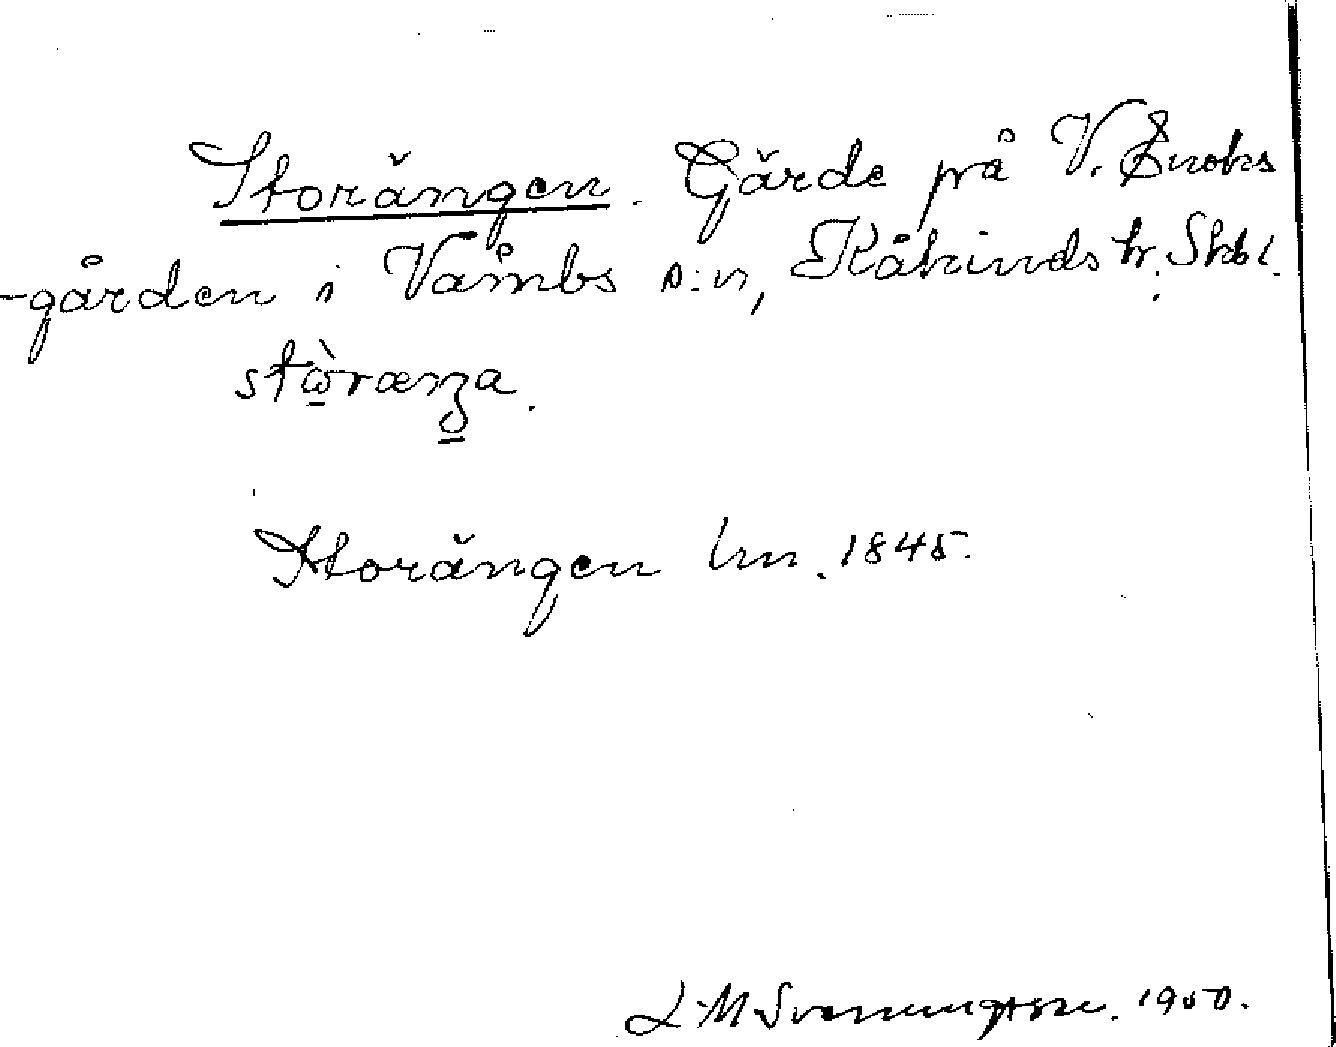 Storängen. Gärde på V. Enoks
-gården i Våmbs s:n, Kåkinds hr. Skbl.
stòranga.
Storängen lm. 1845.
L. M. Svenungsson. 1950.